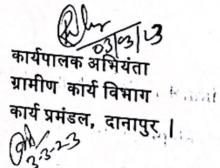 03/03/23
कार्यपालक अभियंता
ग्रामीण कार्य विभाग
कार्य प्रमंडल, दानापुर |
3-3-23